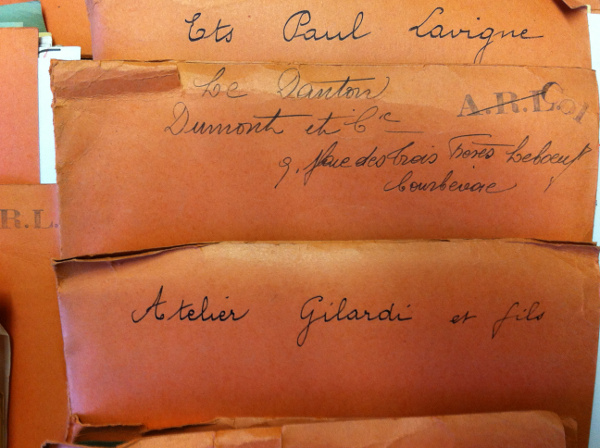 Ets Paul Lavigne
Le Danton
A.R.L.
Dumont et Cie
9, Rue des Trois Frères Leboeuf
Courbevoie
R.L.
Atelier Gilardi et fils